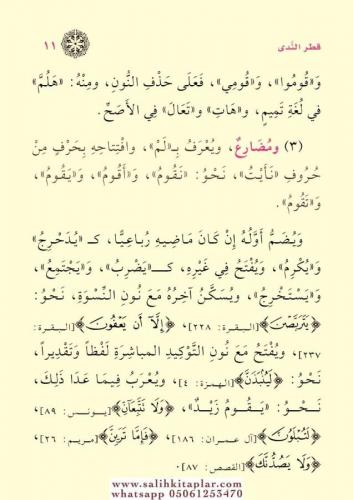 قطر النَّدى
١١
وَ«قُومُوا»، وَ«قُومِي»، فَعَلَى حَذْفِ النُّونِ، ومِنْهُ: «هَلُمَّ»
في لُغَةِ تَمِيمٍ، و«هَاتِ» و«تَعَالَ» فِي الأَصَحِّ.
(٣) ومُضَارِعٌ، ويُعْرَفُ بِـ«لَمْ»، وافْتِتاحِهِ بِحَرْفٍ مِنْ
حُرُوفِ «نَأَيْتُ»، نَحْوُ: «نَقُومُ»، وَ«أَقُومُ»، وَ«يَقُومُ»،
وَ«تَقُومُ».
وَيُضَمُّ أَوَّلُهُ إِنْ كَانَ مَاضِيهِ رُباعِيًّا، كـ «يُدَحْرِجُ»
وَ«يُكْرِمُ»، وَيُفْتَحُ فِي غَيْرِهِ، كـ«يَضْرِبُ»، وَ«يَجْتَمِعُ»،
وَ«يَسْتَخْرِجُ»، وَيُسكَّنُ آخِرُهُ مَعَ نُونِ النِّسْوَةِ، نَحْوُ:
﴿يَتَرَبَّصْنَ﴾[البقرة: ٢٢٨]، ﴿إِلَّآ أَن يَعْفُونَ﴾[البقرة:
٢٣٧]، ويُفْتَحُ مَعَ نُونِ التَّوْكِيدِ المباشِرَةِ لَفْظًا وَتَقْدِيرًا،
نَحْوُ: ﴿لَيُنۢبَذَنَّ﴾[الهمزة: ٤]، ويُعْرَبُ فِيمَا عَدَا ذَلِكَ،
نَحْوُ: «يَقُومُ زَيْدٌ»، ﴿وَلَا نَتَّبِعَآنِّ﴾[يونس: ٨٩]،
﴿لَتُبْلَوُنَّ﴾[آل عمران: ١٨٦]، ﴿فَإِمَّا تَرَيِنَّ﴾[مريم: ٢٦]،
﴿وَلَا يَصُدُّنَّكَ﴾[القصص: ٨٧].
www.salihkitaplar.com
whatsapp 05061253470